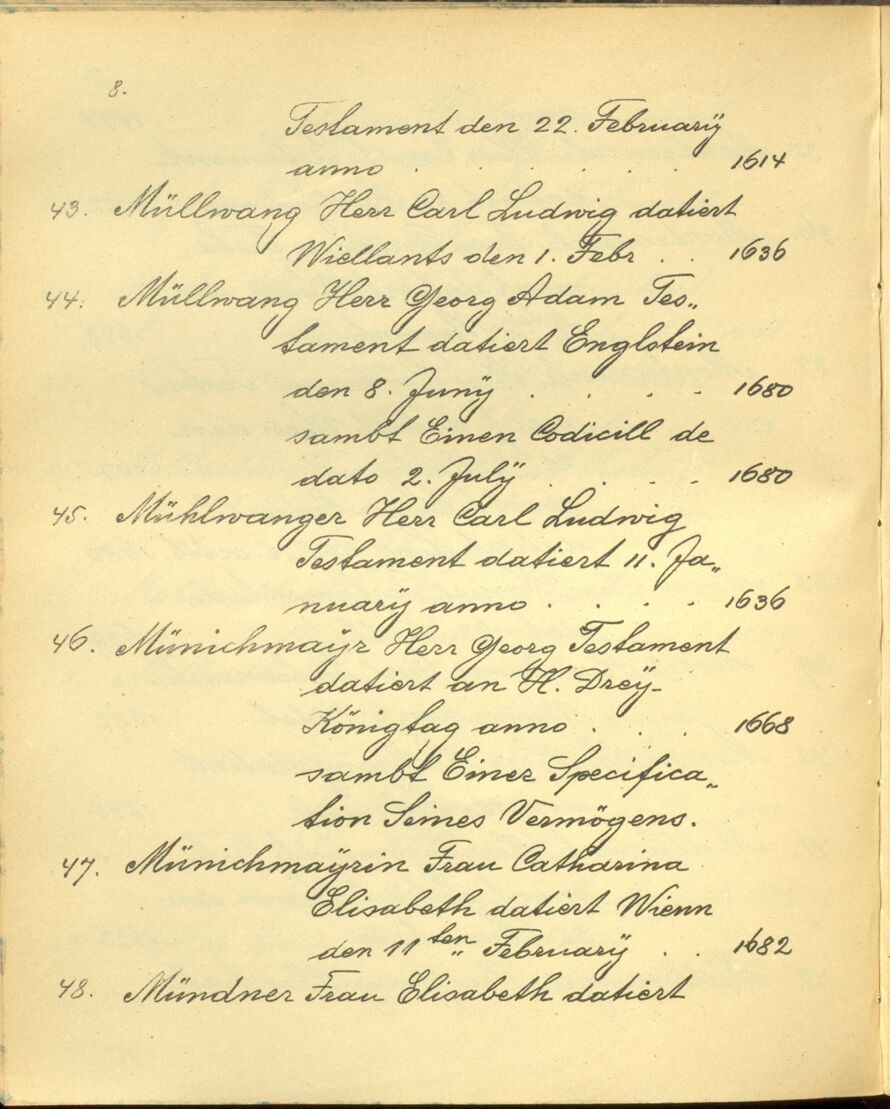 8.
Testament den 22. Februarÿ
anno . . . . . 1614
43. Müllwang Herr Carl Ludwig datiert
Wiellants den 1. Febr . . 1636
44. Müllwang Herr Georg Adam Tes„
tament datiert Englstein
den 8. Junÿ . . . . 1680
sambt Einen Codicill de
dato 2. Julÿ . . . . 1680
45. Mühlwanger Herr Carl Ludwig
Testament datiert 11. Ja„
nuarÿ anno . . . . 1636
46. Münichmayr Herr Georg Testament
datiert an H. Dreÿ-
Königtag anno . . . 1668
sambt Einer Specifica„
tion Seines Vermögens.
47. Münichmaÿrin Frau Catharina
Elisabeth datiert Wienn
den 11ten„ Februarÿ . . 1682
48. Mündner Frau Elisabeth datiert